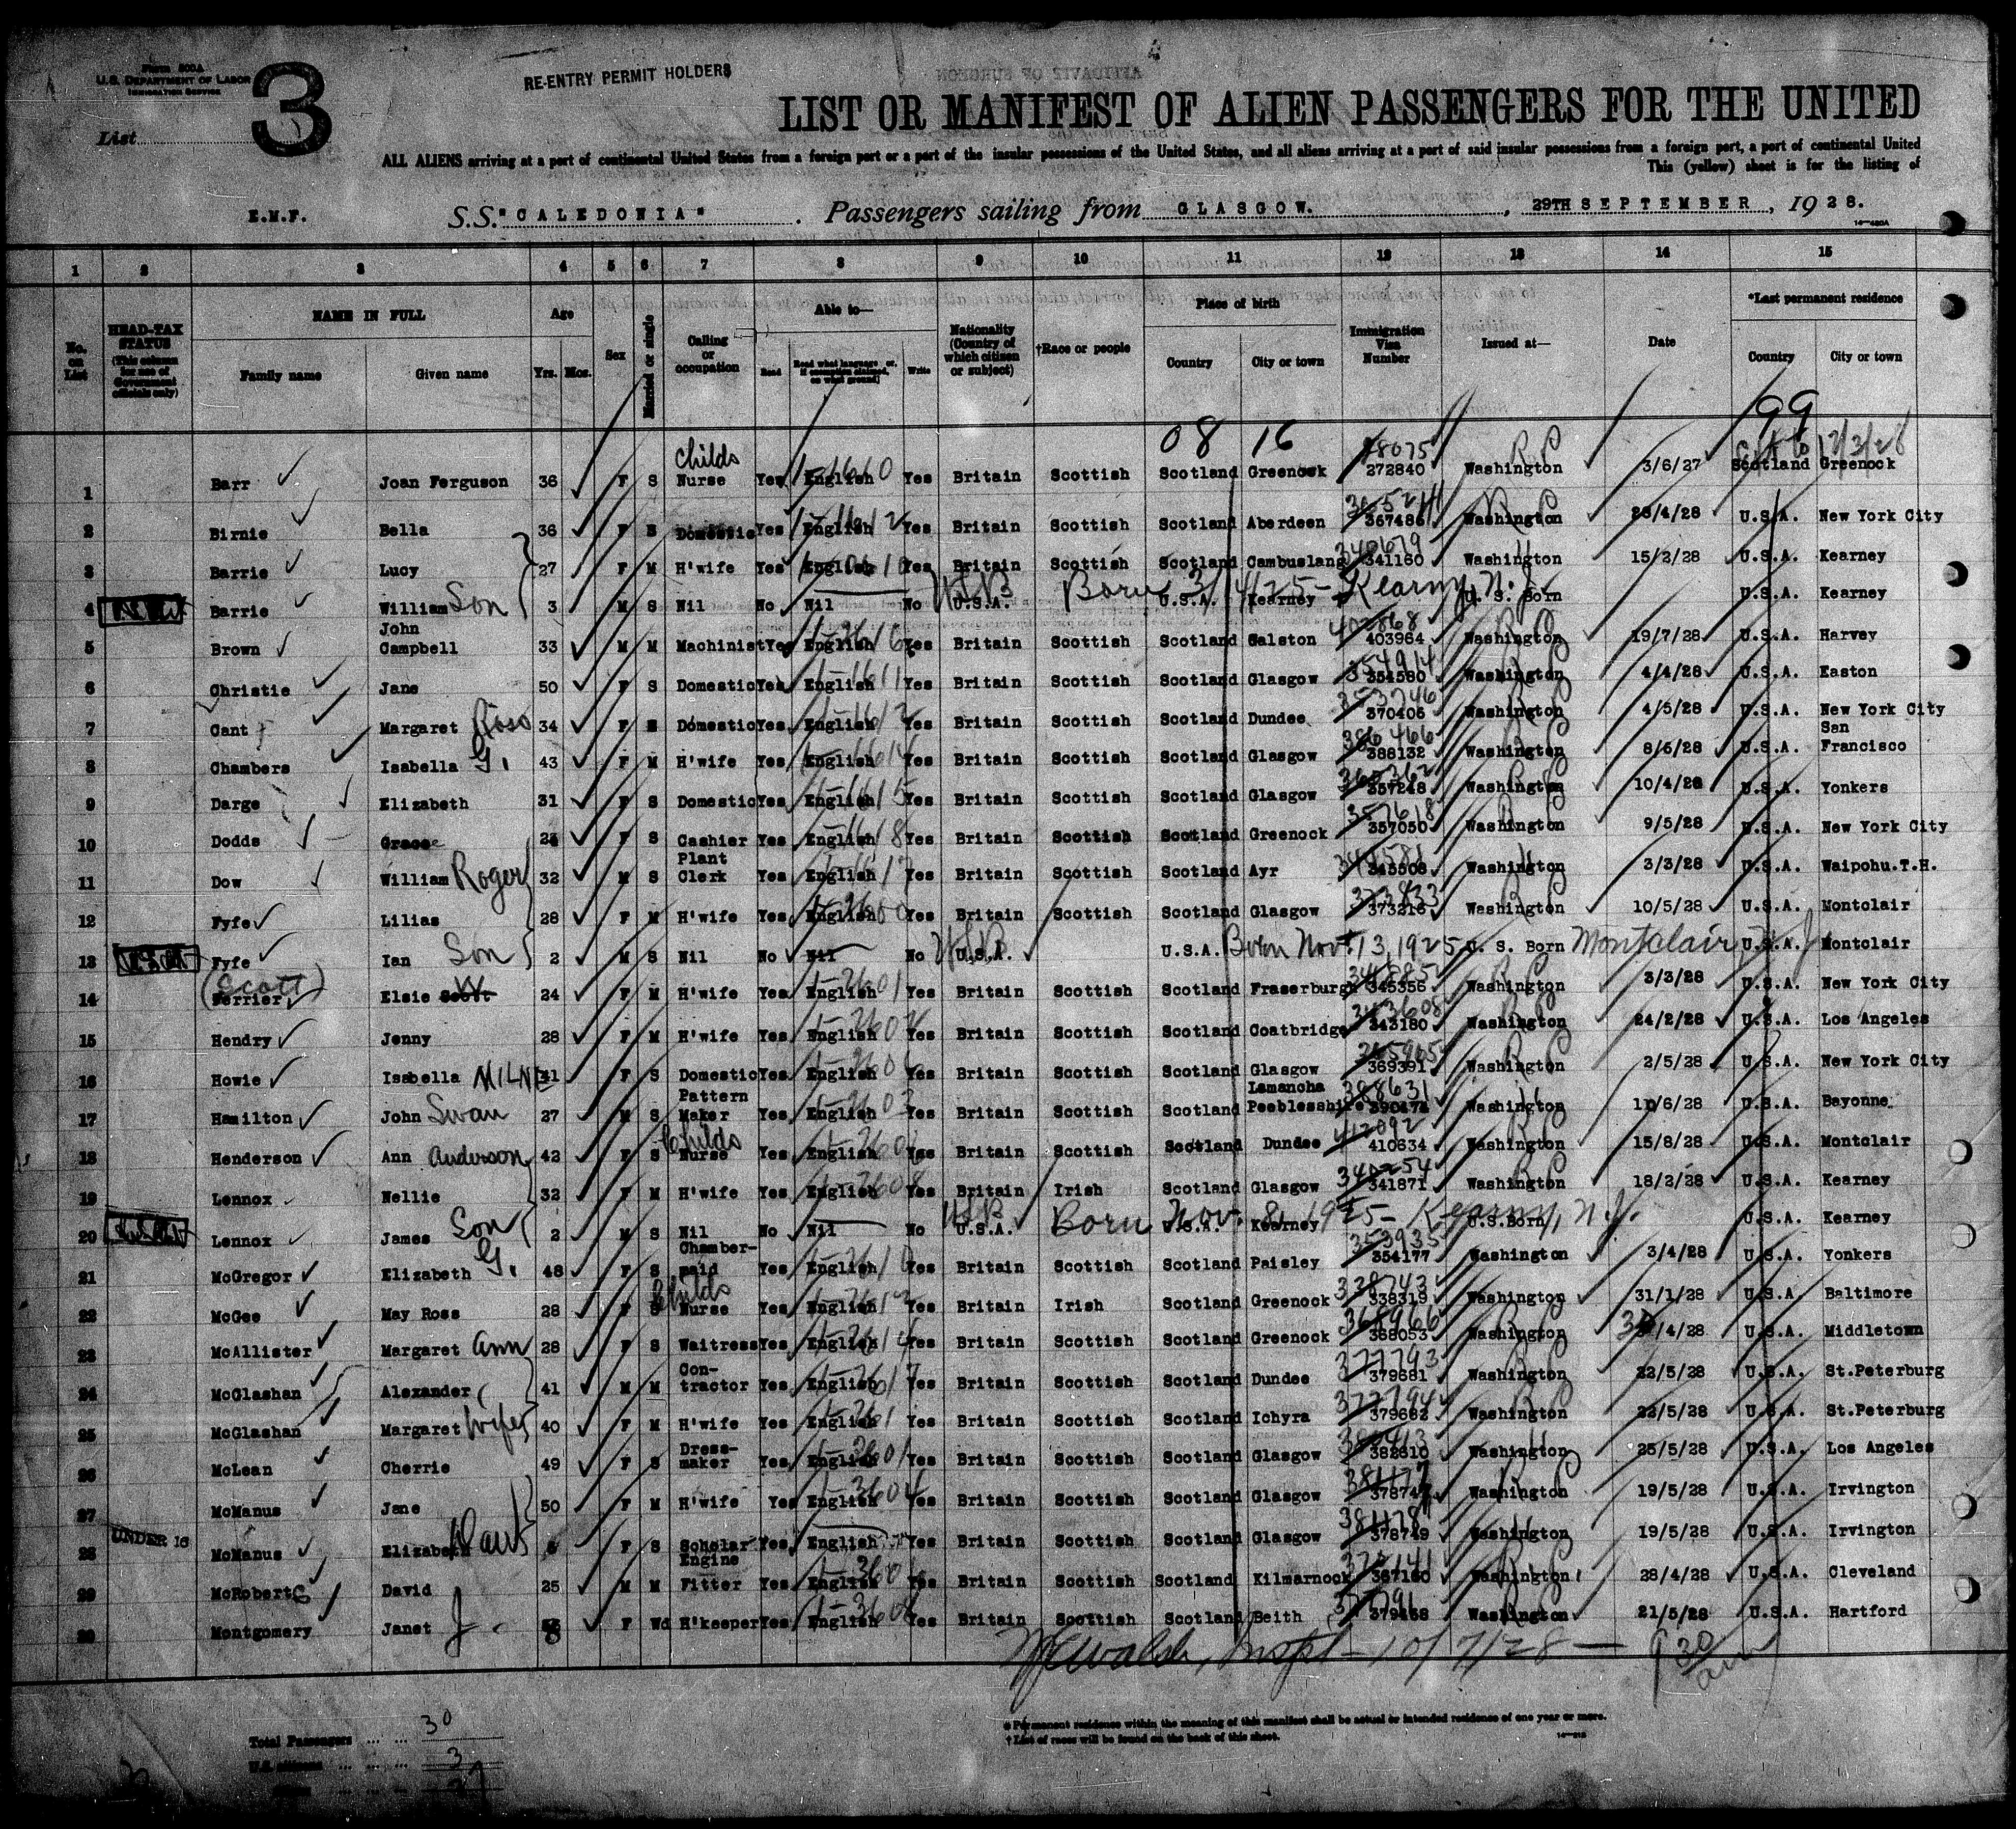 Form 500A
U.S. DEPARTMENT OF LABOR
IMMIGRATION SERVICE
List 3
RE-ENTRY PERMIT HOLDERS
AFFIDAVIT OF SURGEON
LIST OR MANIFEST OF ALIEN PASSENGERS FOR THE UNITED
ALL ALIENS arriving at a port of continental United States from a foreign port or a port of the insular possessions of the United States, and all aliens arriving at a port of said insular possessions from a foreign port, a port of continental United
This (yellow) sheet is for the listing of
E.M.F. S.S. "CALEDONIA" . Passengers sailing from GLASGOW. , 29TH SEPTEMBER , 1928.
1 2 3 4 5 6 7 8 9 10 11 12 13 14 15
No. on List
HEAD-TAX STATUS (This column for use of Government officials only)
NAME IN FULL Family name Given name
Age Yrs. Mos.
Sex
Married or single
Calling or occupation
Able to— Read Read what language or, if exemption claimed, on what ground Write
Nationality (Country of which citizen or subject)
†Race or people
Place of birth Country City or town
Immigration Visa Number
Issued at—
Date
*Last permanent residence Country City or town
08 16 99
1 Barr Joan Ferguson 36 F S Childs Nurse Yes English Yes Britain Scottish Scotland Greenock 272840 Washington RP 3/6/27 Scotland Greenock
2 Birnie Bella 36 F S Domestic Yes English Yes Britain Scottish Scotland Aberdeen 367486 Washington RP 28/4/28 U.S.A. New York City
3 Barrie Lucy 27 F M H'wife Yes English Yes Britain Scottish Scotland Cambuslang 348679 341160 Washington 15/2/28 U.S.A. Kearney
4 Barrie William Son 3 M S Nil No Nil No USB U.S.A. Born 3/14/25 - Kearny, N.J. U.S.A. Kearney U.S. Born U.S.A. Kearney
5 Brown John Campbell 33 M M Machinist Yes English Yes Britain Scottish Scotland Galston 402868 403964 Washington 19/7/28 U.S.A. Harvey
6 Christie Jane 50 F S Domestic Yes English Yes Britain Scottish Scotland Glasgow 354914 354580 Washington 4/4/28 U.S.A. Easton
7 Cant Margaret Ross 34 F S Domestic Yes English Yes Britain Scottish Scotland Dundee 353746 370406 Washington 4/5/28 U.S.A. New York City
8 Chambers Isabella G. 43 F M H'wife Yes English Yes Britain Scottish Scotland Glasgow 386466 388132 Washington 8/6/28 U.S.A. San Francisco
9 Darge Elizabeth 31 F S Domestic Yes English Yes Britain Scottish Scotland Glasgow 357248 Washington 10/4/28 U.S.A. Yonkers
10 Dodds Grace F S Cashier Yes English Yes Britain Scottish Scotland Greenock 357618 357050 Washington 9/5/28 U.S.A. New York City
11 Dow William Roger 32 M S Plant Clerk Yes English Yes Britain Scottish Scotland Ayr 345508 Washington 3/3/28 U.S.A. Waipohu.T.H.
12 Fyfe Lilias 28 F M H'wife Yes English Yes Britain Scottish Scotland Glasgow 373833 373216 Washington 10/5/28 U.S.A. Montclair
13 Fyfe Ian Son 2 M S Nil No Nil No USB U.S.A. U.S.A. Born Nov. 13, 1925 U.S. Born Montclair, N.J. U.S.A. Montclair
14 (Scott) Ferrier Elsie Scott W 24 F M H'wife Yes English Yes Britain Scottish Scotland Fraserburgh 345356 Washington 3/3/28 U.S.A. New York City
15 Hendry Jenny 28 F M H'wife Yes English Yes Britain Scottish Scotland Coatbridge 343608 343180 Washington 24/2/28 U.S.A. Los Angeles
16 Howie Isabella MILNE 31 F S Domestic Yes English Yes Britain Scottish Scotland Glasgow 369391 Washington 2/5/28 U.S.A. New York City
17 Hamilton John Swan 27 M S Pattern Maker Yes English Yes Britain Scottish Scotland Lamancha Peeblesshire 388631 390474 Washington 11/6/28 U.S.A. Bayonne
18 Henderson Ann Anderson 42 F S Childs Nurse Yes English Yes Britain Scottish Scotland Dundee 412092 410634 Washington 15/8/28 U.S.A. Montclair
19 Lennox Nellie 32 F M H'wife Yes English Yes Britain Irish Scotland Glasgow 340254 341871 Washington 18/2/28 U.S.A. Kearney
20 Lennox James Son 2 M S Nil No Nil No USB U.S.A. Born Nov. 8, 1925 - Kearny, N.J. U.S.A. Kearney U.S.Born U.S.A. Kearney
21 McGregor Elizabeth G. 48 F S Chamber-maid Yes English Yes Britain Scottish Scotland Paisley 353935 354177 Washington 3/4/28 U.S.A. Yonkers
22 McGee May Ross 28 F S Childs Nurse Yes English Yes Britain Irish Scotland Greenock 328743 338319 Washington 31/1/28 U.S.A. Baltimore
23 McAllister Margaret Ann 28 F S Waitress Yes English Yes Britain Scottish Scotland Greenock 368966 368053 Washington /4/28 U.S.A. Middletown
24 McGlashan Alexander 41 M M Con-tractor Yes English Yes Britain Scottish Scotland Dundee 377793 379681 Washington 22/5/28 U.S.A. St.Peterburg
25 McGlashan Margaret Wife 40 F M H'wife Yes English Yes Britain Scottish Scotland Ichyra 377794 379682 Washington 22/5/28 U.S.A. St.Peterburg
26 McLean Cherrie 49 F S Dress-maker Yes English Yes Britain Scottish Scotland Glasgow 382810 Washington 25/5/28 U.S.A. Los Angeles
27 McManus Jane 50 F M H'wife Yes English Yes Britain Scottish Scotland Glasgow 381177 Washington 19/5/28 U.S.A. Irvington
28 UNDER 16 McManus Elizabeth Daut F S Scholar Yes English Yes Britain Scottish Scotland Glasgow 381178 378749 Washington 19/5/28 U.S.A. Irvington
29 McRoberts David 25 M M Engine Fitter Yes English Yes Britain Scottish Scotland Kilmarnock 367160 Washington 28/4/28 U.S.A. Cleveland
30 Montgomery Janet J. F Wd H'keeper Yes English Yes Britain Scottish Scotland Beith 379468 Washington 21/5/28 U.S.A. Hartford
Inspt - 10/7/28 - 9 30/am
Total Passengers ... ... 30
U.S. citizens ... ... ... 3
27
* Permanent residence within the meaning of this manifest shall be actual or intended residence of one year or more.
† List of races will be found on the back of this sheet.